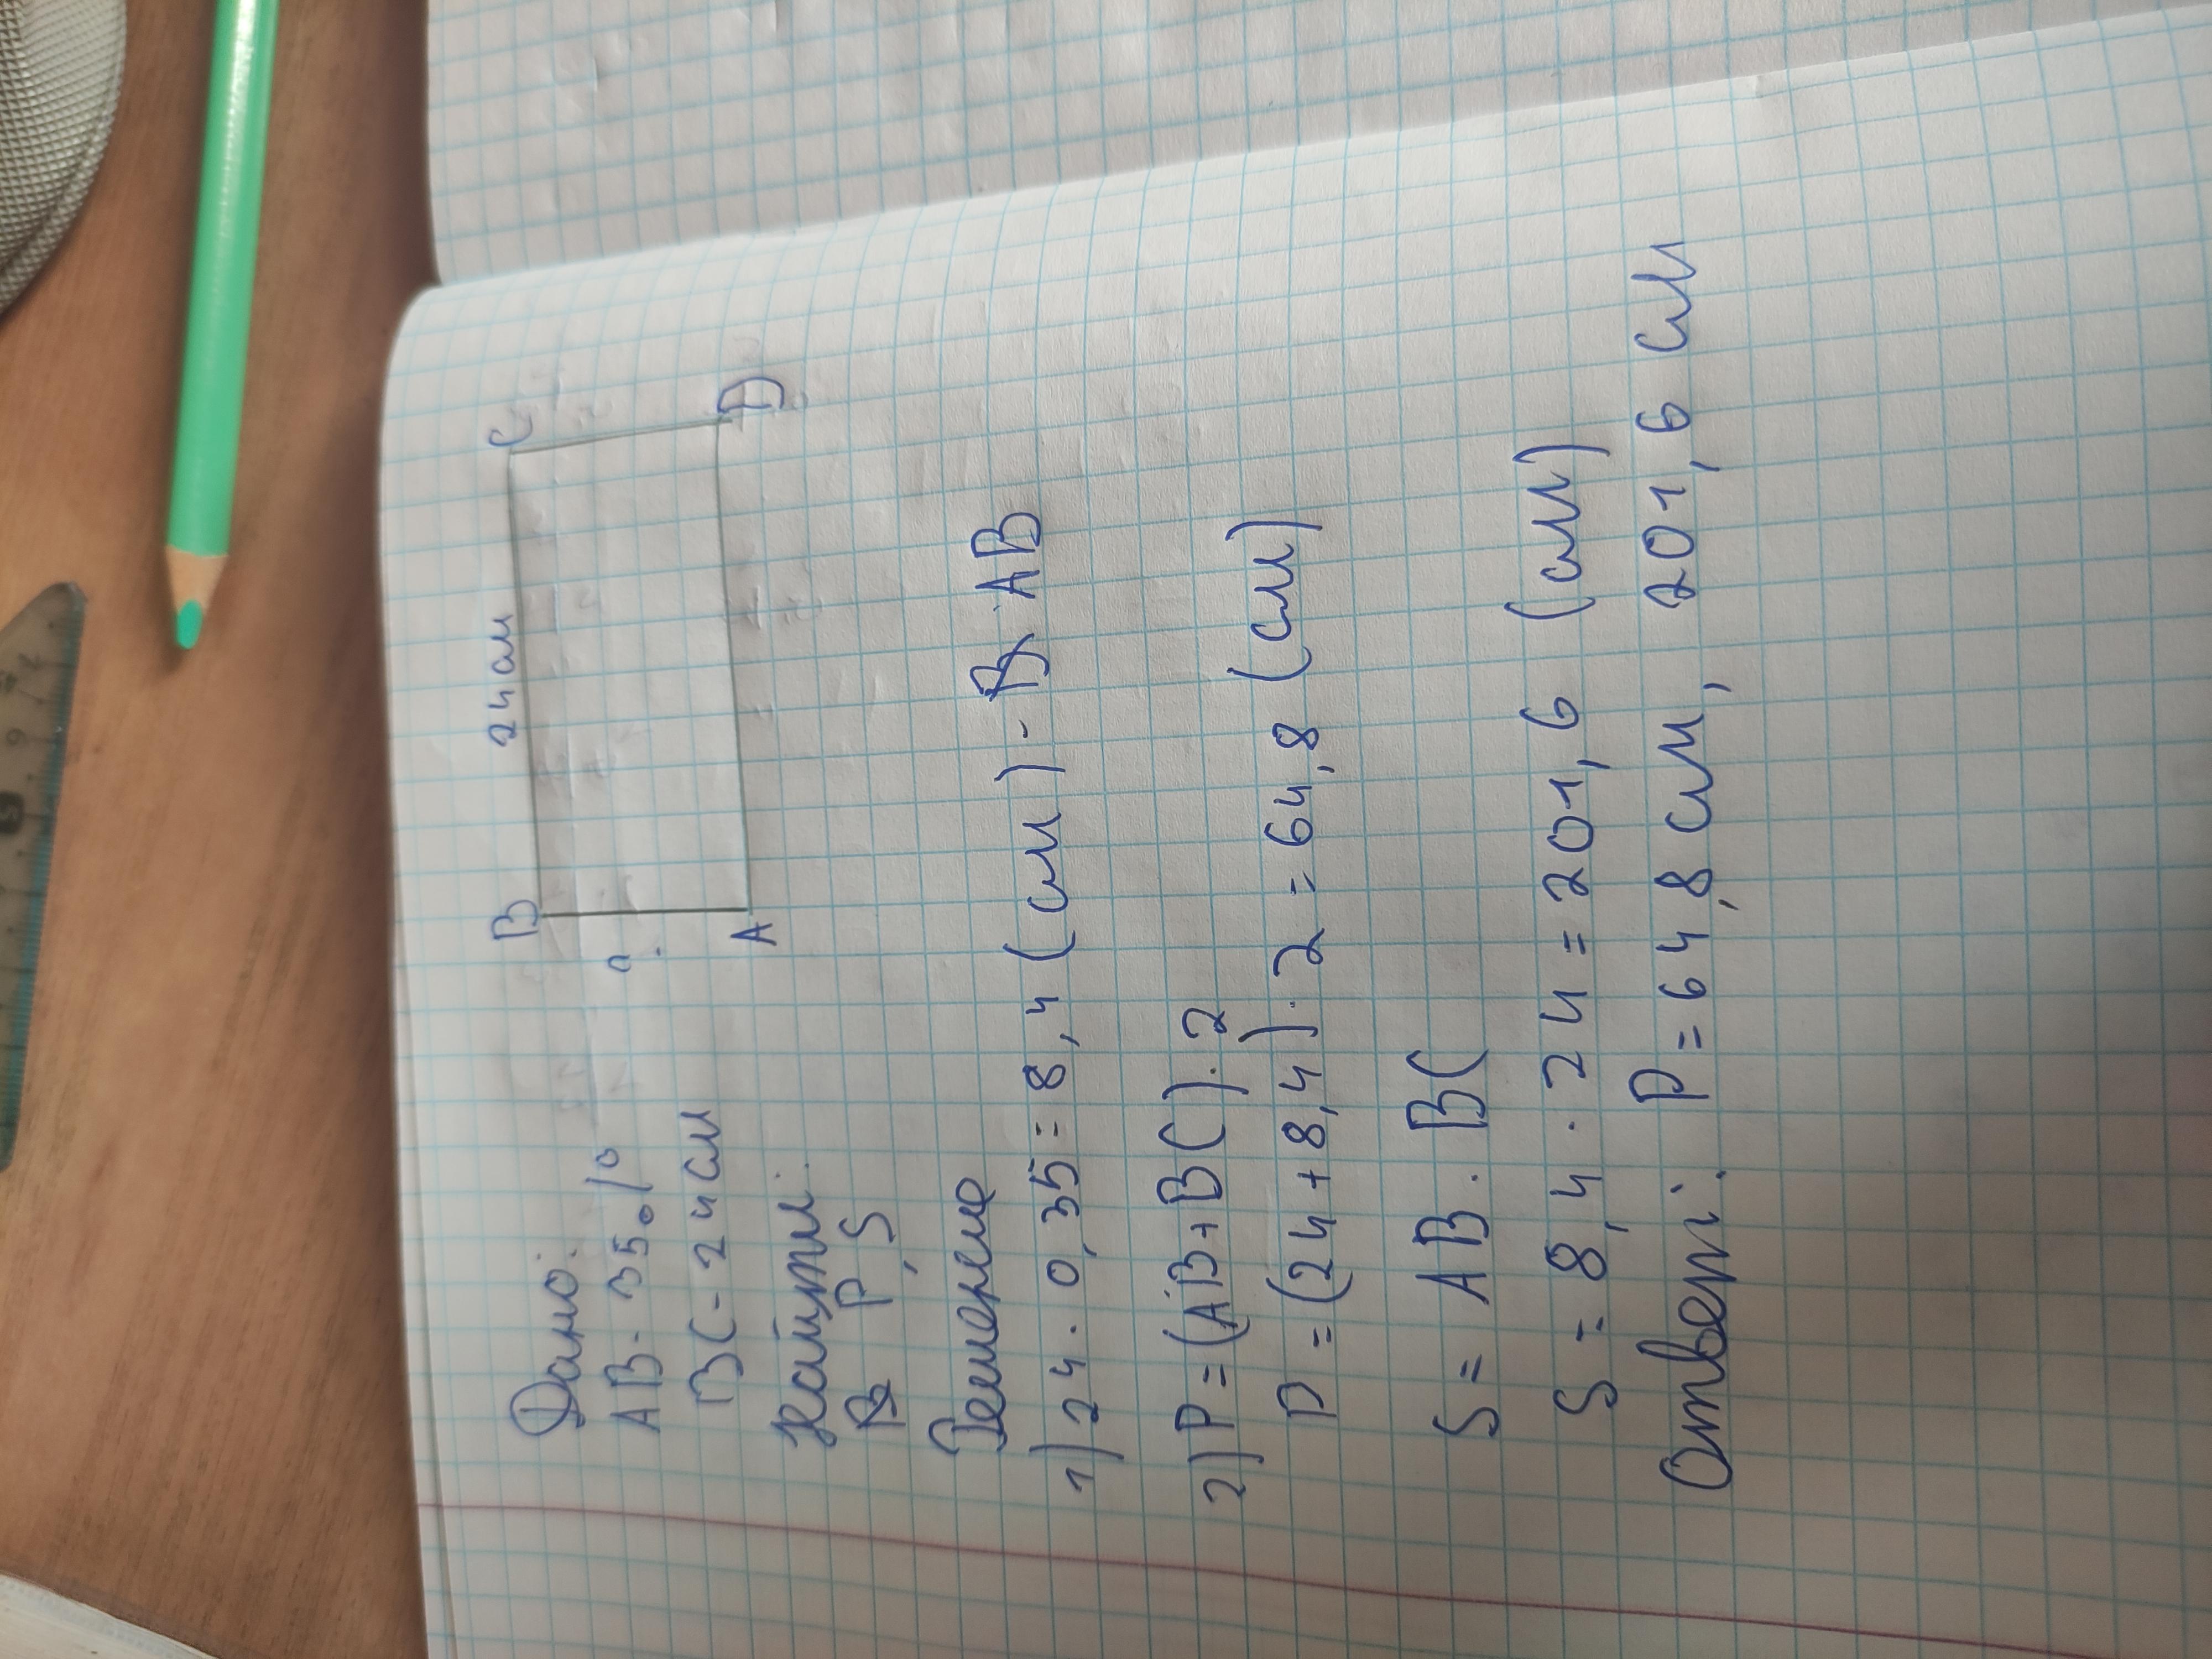 Дано:
AB - 35%
BC - 24 см
Найти:
P, S
B
24 см
C
?
A
D
Решение
1) 24 · 0,35 = 8,4 (см) - AB
2) P = (AB + BC) · 2
P = (24 + 8,4) · 2 = 64,8 (см)
S = AB · BC
S = 8,4 · 24 = 201,6 (см)
Ответ: P = 64,8 см, 201,6 см